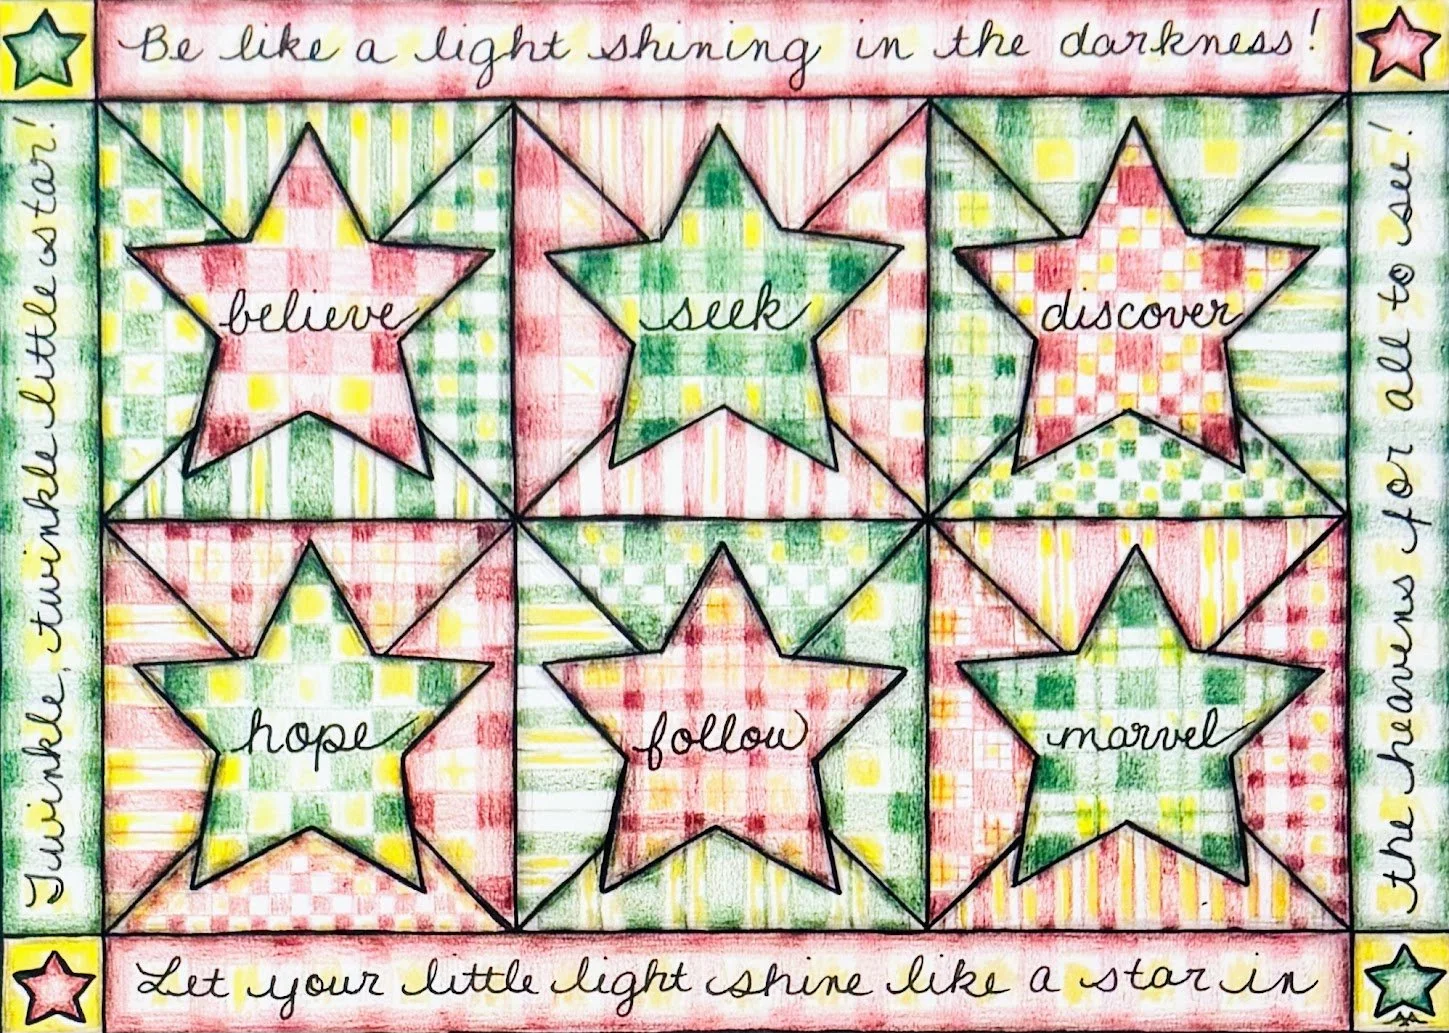 Twinkle, twinkle little star!
Be like a light shining in the darkness!
believe
seek
discover
hope
follow
marvel
Let your little light shine like a star in
the heavens for all to see!